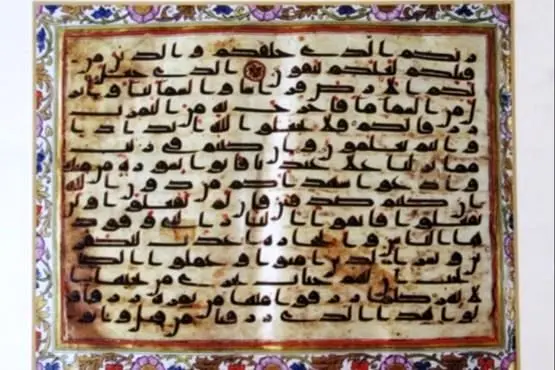 ربكم الذي خلقكم والذين من
قبلكم لعلكم تتقون الذي جعل
لكم الارض فرشا والسما بنا وانز
ل من السما ما فاخرج به من الثمرت
رزقا لكم فلا تجعلوا لله اندادا
وانتم تعلمون وان كنتم في ريب
مما نزلنا على عبدنا فاتوا بسورة من مثله
وادعوا شهداكم من دون الله
ان كنتم صدقين فان لم تفعلوا ولن
تفعلوا فاتقوا النار التي وقود
ها الناس والحجارة اعدت للكفر
ين وبشر الذين امنوا وعملوا الصل
حت ان لهم جنت تجري من تحتها ا
لانهر كلما رزقوا منها من ثمرة رزقا قا
لوا هذا الذي رزقنا من قبل واتوا